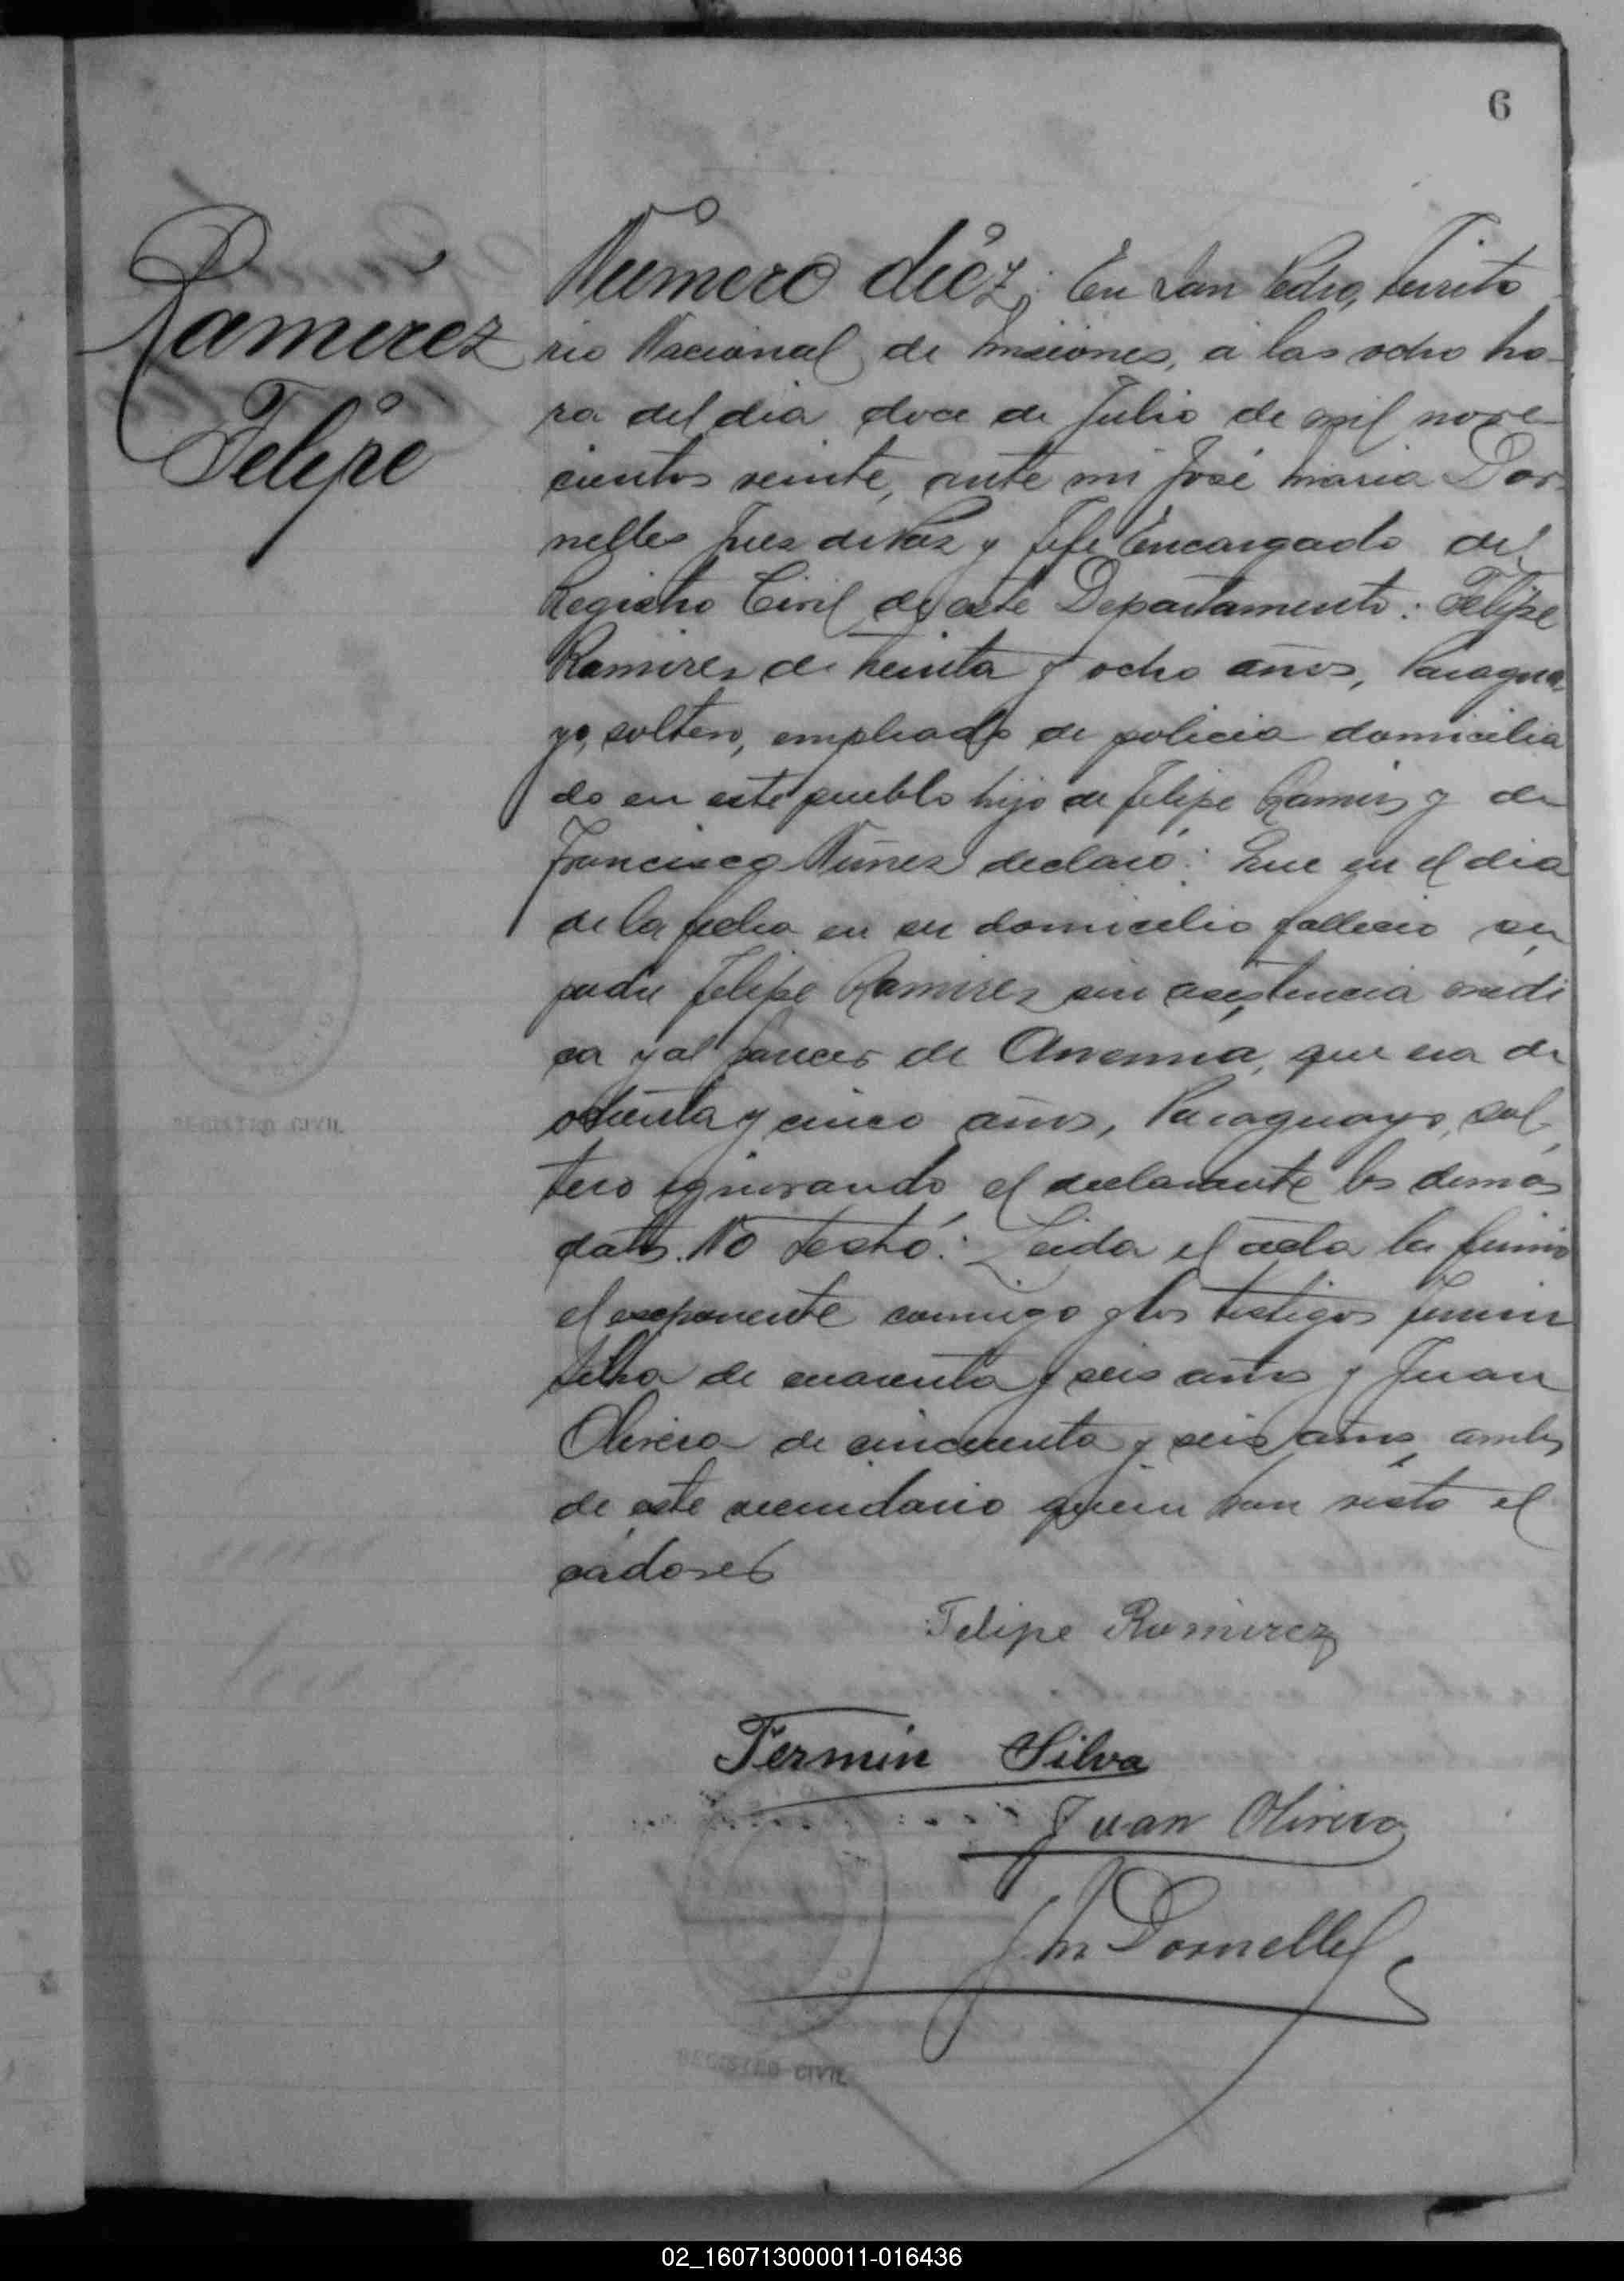 6
Ramirez
Felipe
Número diéz; En San Pedro, Territo
rio Nacional de Misiones, á las ocho ho-
ra del dia doce de Julio de mil nove-
cientos veinte, ante mi José Maria Dor-
nelles Juez de Paz y Jefe Encargado del
Registro Civil de este Departamento: Felipe
Ramires de treinta y ocho años, Paragua-
yo, soltero, empleado de policia domicilia
do en este pueblo hijo de Felipe Ramirez y de
Francisca Nuñez declaró: Que en el dia
de la fecha en su domicilio fallecio su
padre Felipe Ramirez sin asistencia medi
ca y al parecer de Anemia, que era de
ochenta y cinco años, Paraguayo, sol
tero ignorando el declarante los demás
datos. No testó: Leida el acta la firmo
el exponente conmigo y los testigos Fermin
Silva de cuarenta y seis años y Juan
Olivera de cincuenta y seis años ambos
de este vecindario quien han visto el
cadover
Felipe Ramirez
Fermin Silva
Juan Olivera
J M Dornelles
REGISTRO CIVIL
REGISTRO CIVIL
02_160713000011-016436